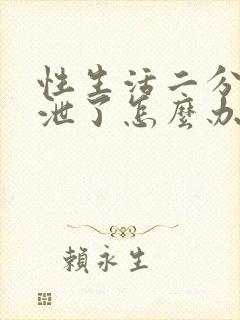 性生活二分
泄了怎麼办
賴永生